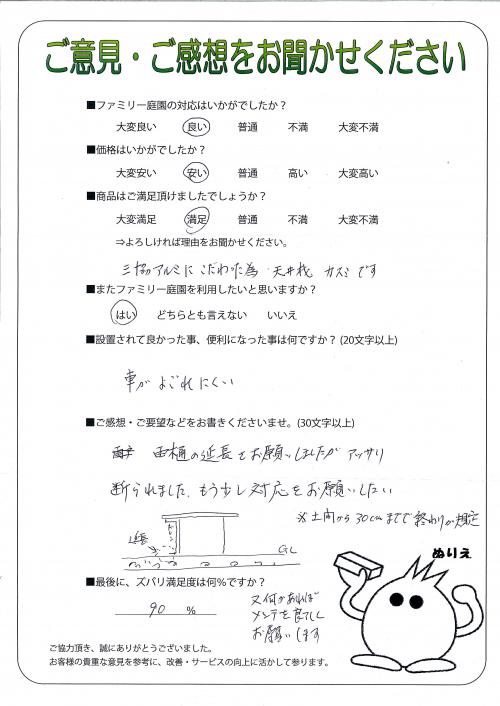 ご意見・ご感想をお聞かせください
■ファミリー庭園の対応はいかがでしたか？
大変良い 良い 普通 不満 大変不満
■価格はいかがでしたか？
大変安い 安い 普通 高い 大変高い
■商品はご満足頂けましたでしょうか？
大変満足 満足 普通 不満 大変不満
⇒よろしければ理由をお聞かせください。
三協アルミにこだわった為 天井材 カスミです
■またファミリー庭園を利用したいと思いますか？
はい どちらとも言えない いいえ
■設置されて良かった事、便利になった事は何ですか？(20文字以上)
車がよごれにくい
■ご感想・ご要望などをお書きくださいませ。(30文字以上)
雨樋の延長をお願いしましたがアッサリ
断られました。もう少し対応をお願いしたい
※土間から30cmまで終わりが規定
延長
GL
ぬりえ
■最後に、ズバリ満足度は何％ですか？
90 %
又何かあれば
メンテを良ろしく
お願いします
ご協力頂き、誠にありがとうございました。
お客様の貴重な意見を参考に、改善・サービスの向上に活かして参ります。